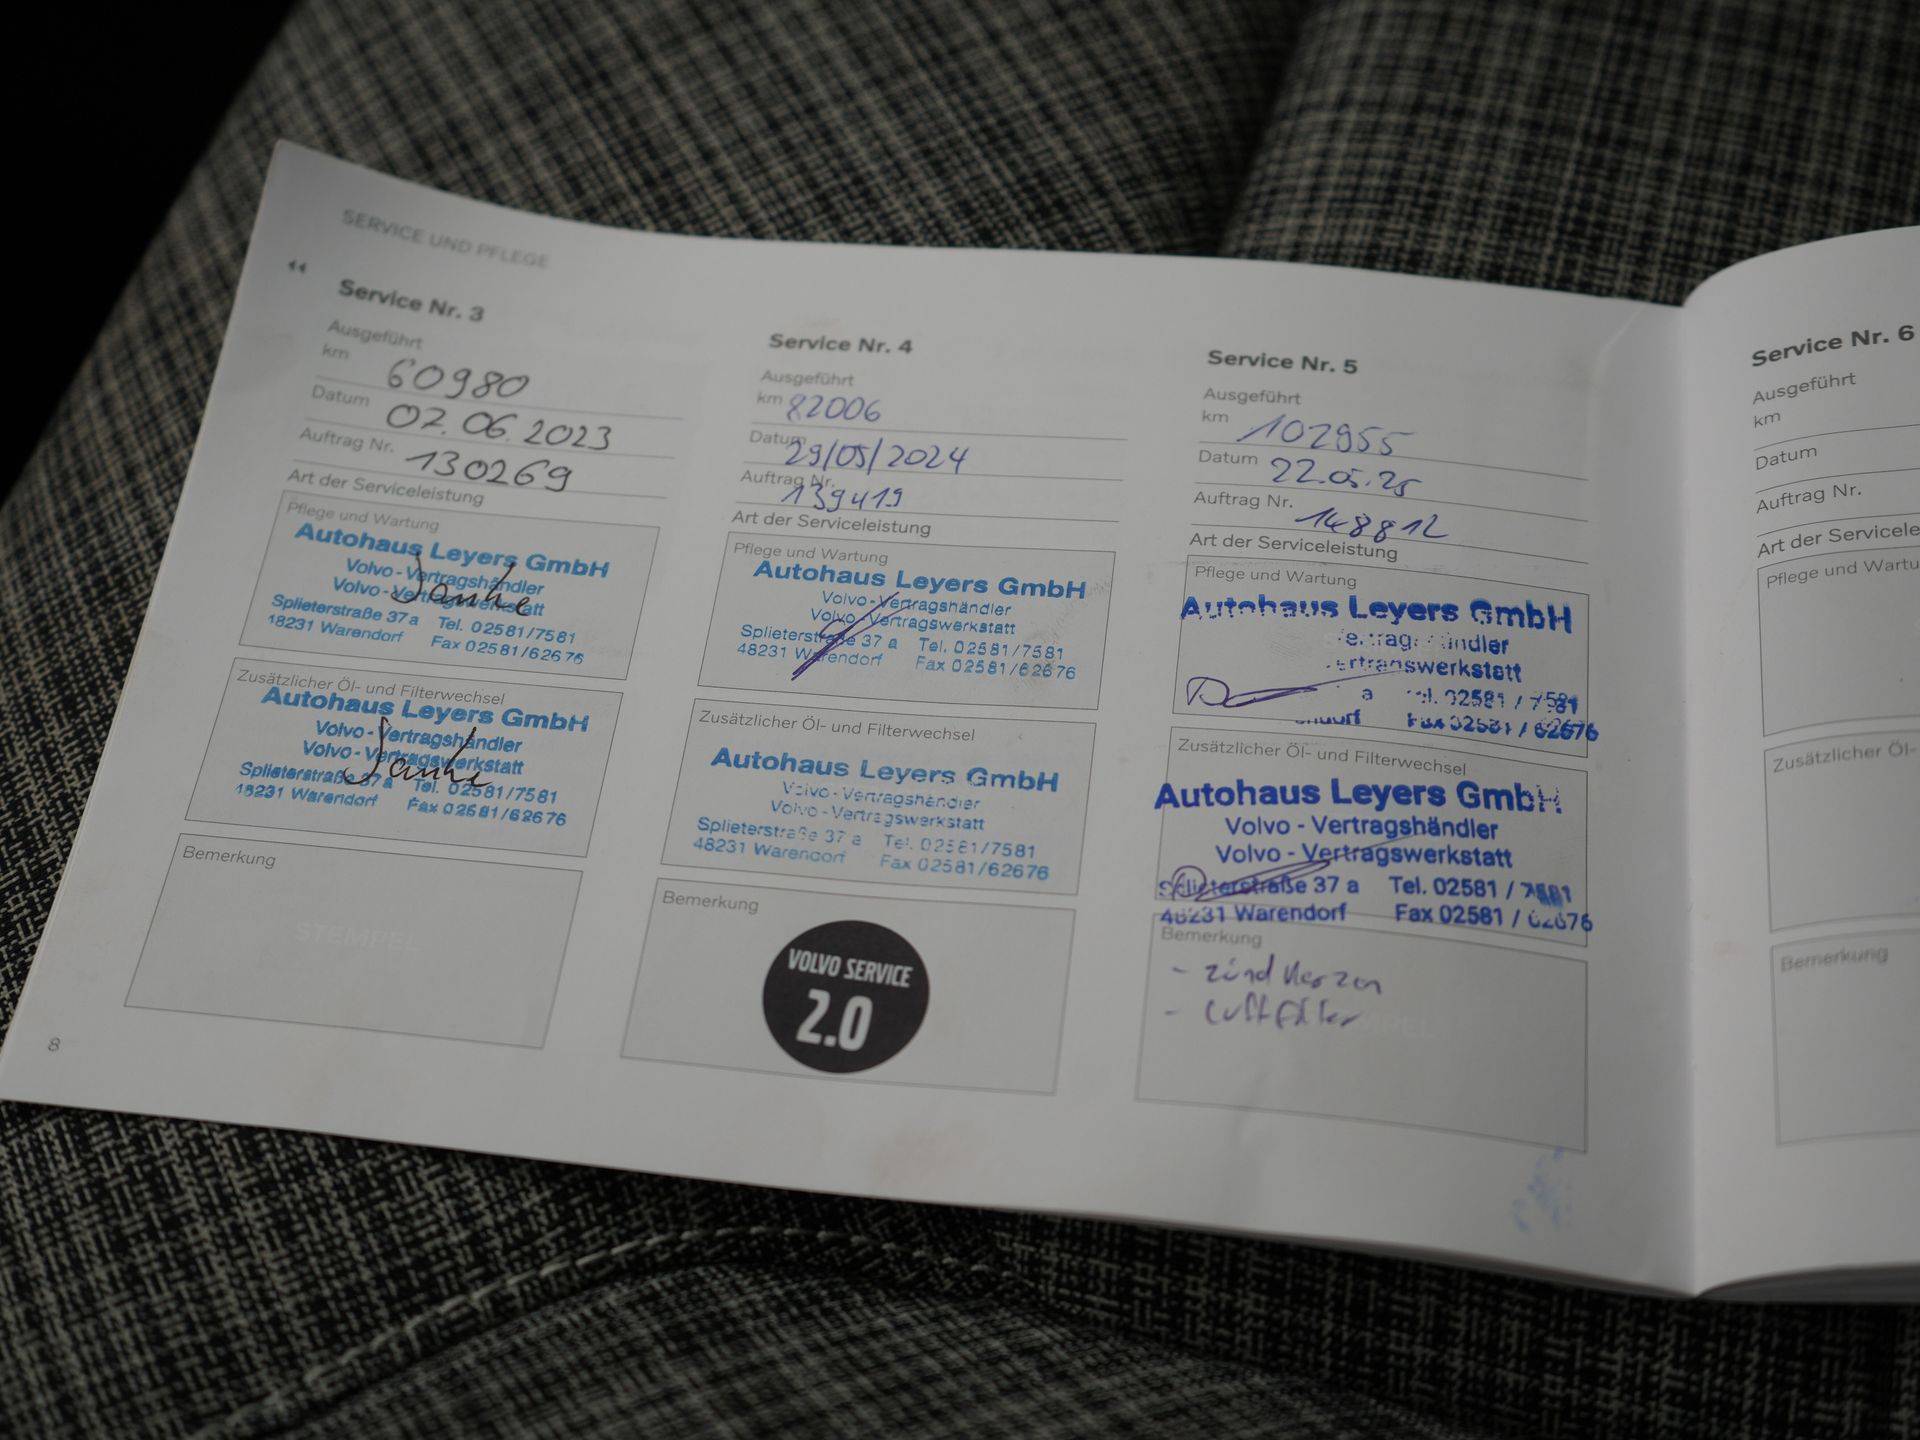 SERVICE UND PFLEGE
Service Nr. 3
Ausgeführt
km 60980
Datum 02.06.2023
Auftrag Nr. 130269
Art der Serviceleistung
Pflege und Wartung
Autohaus Leyers GmbH
Volvo-Vertragshändler
Volvo-Vertragswerkstatt
Splieterstraße 37 a Tel. 02581/7581
48231 Warendorf Fax 02581/62676
Zusätzlicher Öl- und Filterwechsel
Autohaus Leyers GmbH
Volvo-Vertragshändler
Volvo-Vertragswerkstatt
Splieterstraße 37 a Tel. 02581/7581
48231 Warendorf Fax 02581/62676
Bemerkung
STEMPEL
8
Service Nr. 4
Ausgeführt
km 82006
Datum 29/05/2024
Auftrag Nr. 139419
Art der Serviceleistung
Pflege und Wartung
Autohaus Leyers GmbH
Volvo-Vertragshändler
Volvo-Vertragswerkstatt
Splieterstraße 37 a Tel. 02581/7581
48231 Warendorf Fax 02581/62676
Zusätzlicher Öl- und Filterwechsel
Autohaus Leyers GmbH
Volvo-Vertragshändler
Volvo-Vertragswerkstatt
Splieterstraße 37 a Tel. 02581/7581
48231 Warendorf Fax 02581/62676
Bemerkung
VOLVO SERVICE
2.0
Service Nr. 5
Ausgeführt
km 102955
Datum 22.05.25
Auftrag Nr. 148812
Art der Serviceleistung
Pflege und Wartung
Autohaus Leyers GmbH
a 02581 / 7581
Fax 02581 / 62676
Zusätzlicher Öl- und Filterwechsel
Autohaus Leyers GmbH
Volvo - Vertragshändler
Volvo - Vertragswerkstatt
Splieterstraße 37 a Tel. 02581 / 7581
48231 Warendorf Fax 02581 / 62676
Bemerkung
- Zündkerzen
- Luftfilter
Service Nr. 6
Ausgeführt
km
Datum
Auftrag Nr.
Art der Servicele
Pflege und Wartu
Zusätzlicher Öl-
Bemerkung